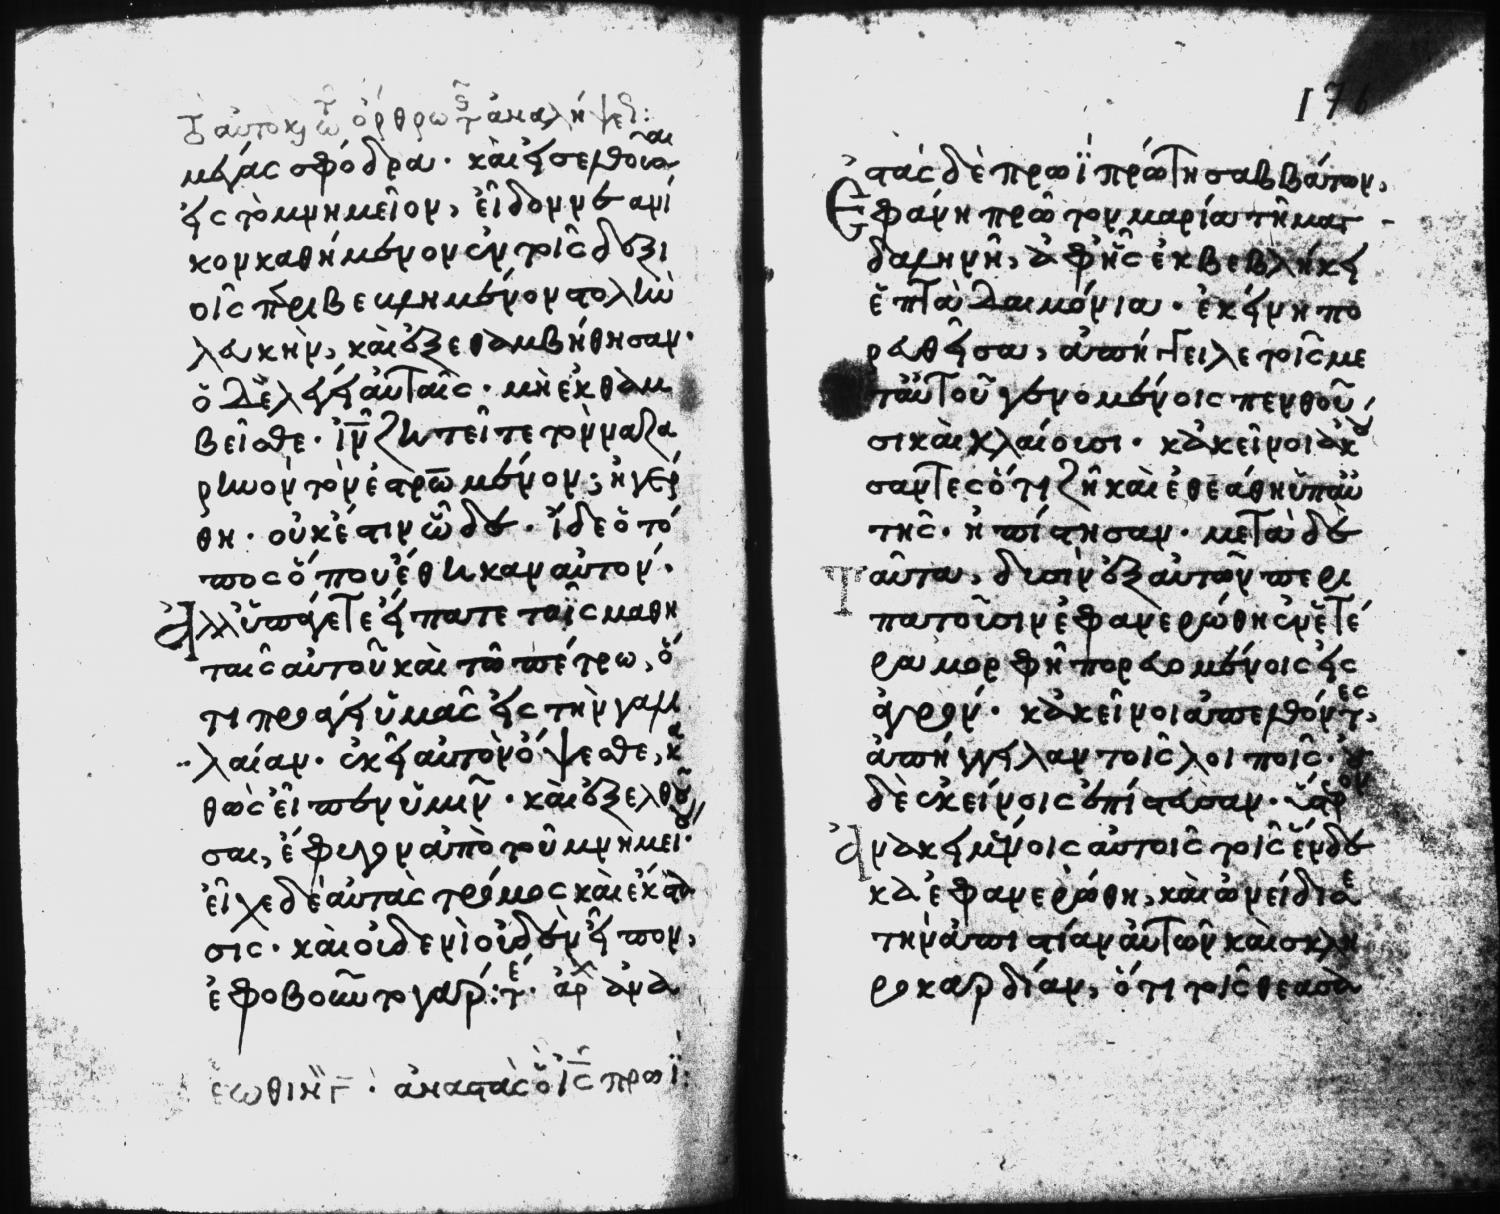 μέγας σφόδρα· καὶ εἰσελθοῦσαι
εἰς τὸ μνημεῖον, εἶδον νεανί
σκον καθήμενον ἐν τοῖς δεξι
οῖς περιβεβλημένον στολὴν
λευκὴν, καὶ ἐξεθαμβήθησαν·
ὁ δὲ λέγει αὐταῖς· μὴ ἐκθαμ
βεῖσθε· ἰν ζητεῖτε τὸν ναζα
ρηνὸν τὸν ἐσταυρωμένον; ἠγέρ
θη· οὐκ ἔστιν ὧδε· ἴδε ὁ τό
πος ὅπου ἔθηκαν αὐτόν·
Ἀλλ' ὑπάγετε εἴπατε τοῖς μαθη
ταῖς αὐτοῦ καὶ τῶ πέτρω, ὅ
τι προάγει ὑμᾶς εἰς τὴν γαλι
λαίαν· ἐκεῖ αὐτὸν ὄψεσθε, κα
θὼς εἶπεν ὑμῖν· καὶ ἐξελθοῦ
σαι, ἔφυγον ἀπὸ τοῦ μνημείου·
εἶχε δὲ αὐτὰς τρόμος καὶ ἔκστα
σις· καὶ οὐδενὶ οὐδὲν εἶπον,
ἐφοβοῦντο γάρ:
ἑωθιν γ · ἀναστὰς ὁ ις πρωΐ:
176
στὰς δὲ πρωῒ πρώτη σαββάτου,
Ἐφάνη πρῶτον μαρία τῆ μαγ
δαληνῆ, ἀφ' ἧς ἐκβεβλήκει
ἑπτὰ δαιμόνια· ἐκείνη πο
ρευθεῖσα, ἀπήγγειλε τοῖς με
τ' αὐτοῦ γενομένοις πενθοῦ
σι καὶ κλαίουσι· κἀκεῖνοι ἀκού
σαντες ὅτι ζῆ καὶ ἐθεάθη ὑπ' αὐ
τῆς· ἠπίστησαν· μετὰ δὲ
Ταῦτα, δυσὶν ἐξ αὐτῶν περι
πατοῦσιν ἐφανερώθη ἐν ἑτέ
ρα μορφῆ πορευομένοις εἰς
ἀγρόν· κἀκεῖνοι ἀπελθόντες,
ἀπήγγειλαν τοῖς λοιποῖς· οὐ
δὲ ἐκείνοις ἐπίστευσαν· ὕστερον
Ἀνακειμένοις αὐτοῖς τοῖς ἕνδε
κα ἐφανερώθη, καὶ ὠνείδισε
τὴν ἀπιστίαν αὐτῶν καὶ σκλη
ροκαρδίαν, ὅτι τοῖς θεασα